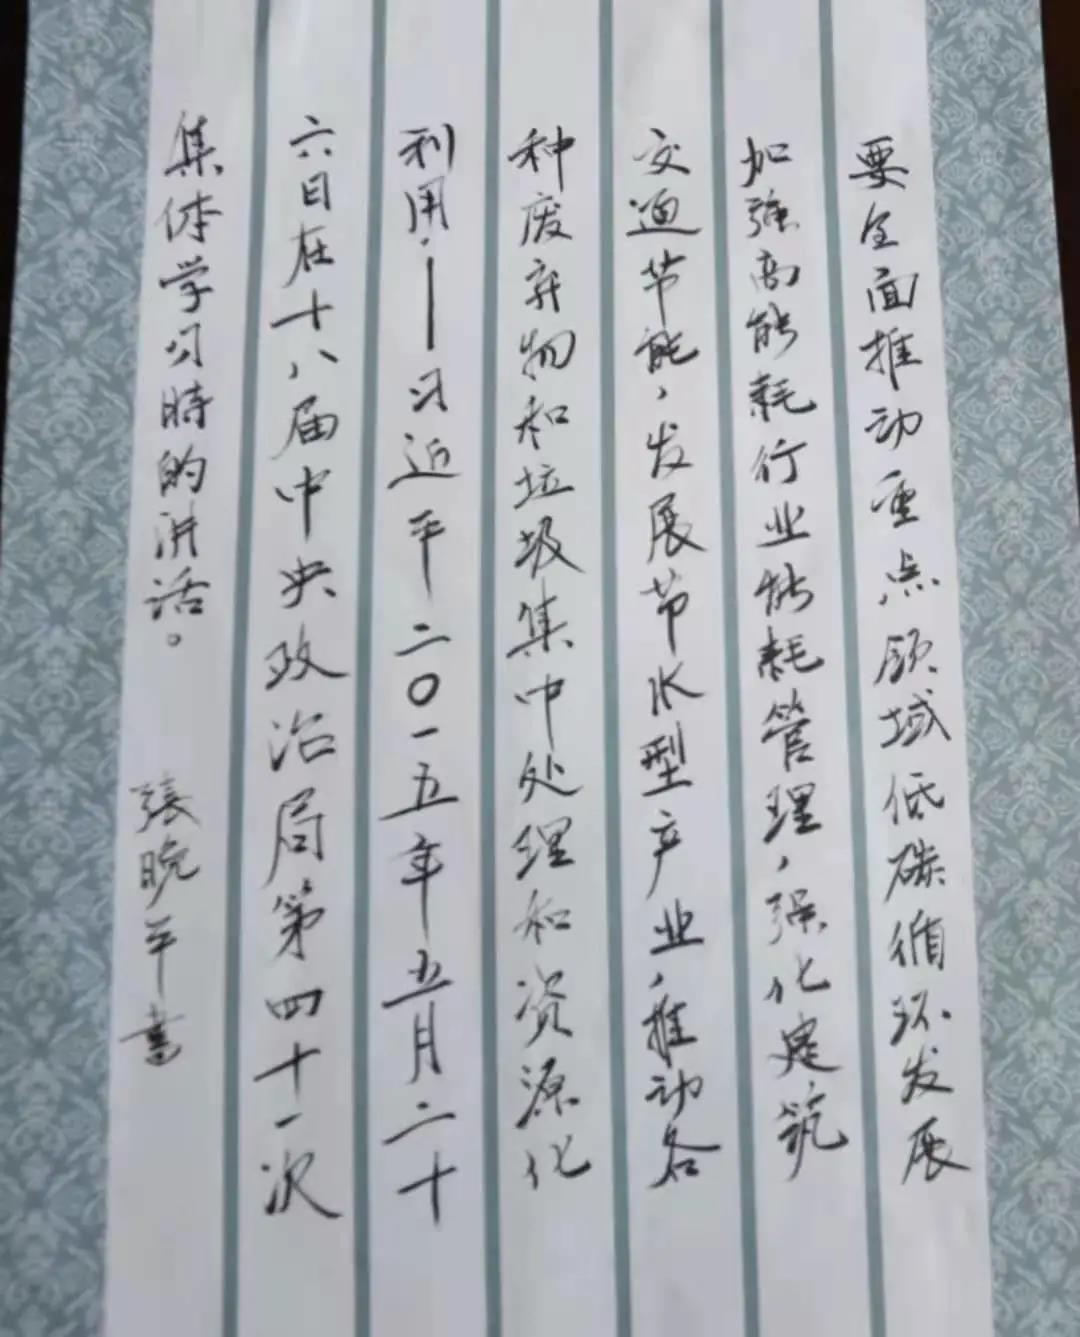 要全面推动重点领域低碳循环发展
加强高能耗行业能耗管理，强化建筑
交通节能，发展节水型产业，推动各
种废弃物和垃圾集中处理和资源化
利用.——习近平二〇一五年五月二十
六日在十八届中央政治局第四十一次
集体学习時的讲话。
張晚年書